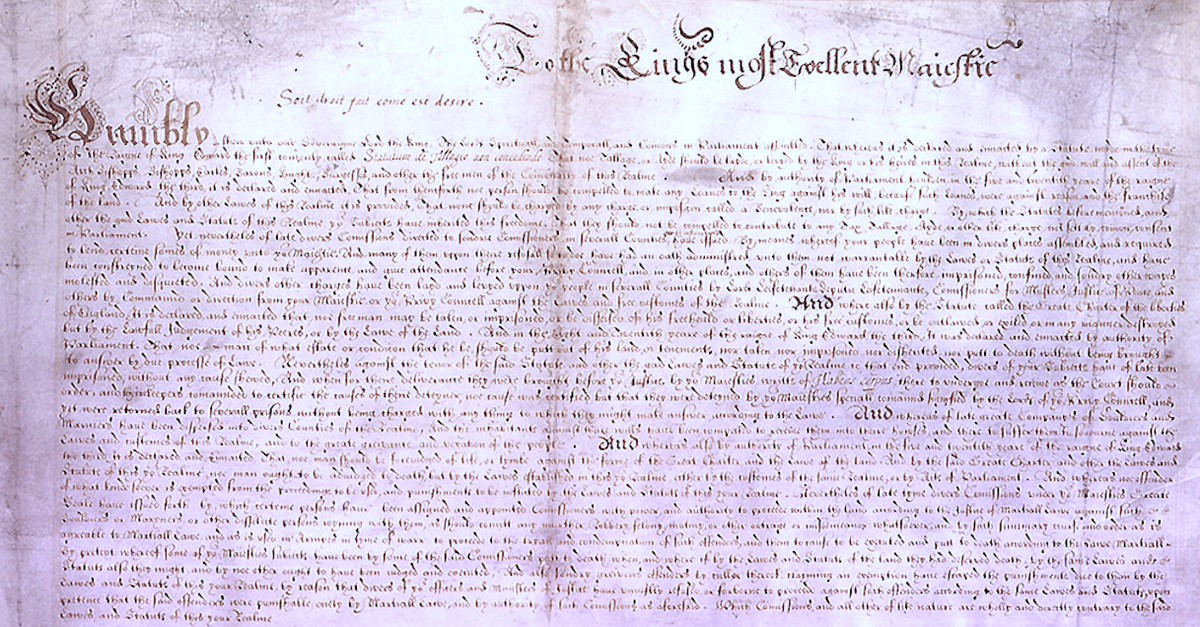 To the Kings most Excellent Maiestie
Soit droit fait come est desire.
Humbly shew unto our Soveraigne Lord the King, the Lords Spirituall and Temporall, and Comons in Parliament assembled. That whereas it is declared and enacted by a Statute made in the tyme
of the raigne of King Edward the first comonly called Statutum de Tallagio non concedendo That noe Tallage or Aide should be laide or levyed by the King or his heires in this Realme, without the good will and assent of the
Arch Bishopps, Bishopps, Earles, Barons, Knights, Burgesses, and other the free men of the Comonalty of this Realme. And by authority of Parliament holden in the five and twentith yeare of the raigne
of King Edward the third, it is declared and enacted That from thenceforth noe person should be compelled to make any Loanes to the King against his will, because such Loanes were against reason, and the franchise
of the land. And by other Lawes of this Realme it is provided, That none should be charged by any charge or imposition called a Benevolence, nor by such like charge. By which the Statutes before mentioned, and
other the good Lawes and Statutes of this Realme yor Subiects have inherited this freedome, That they should not be compelled to contribute to any Tax, Tallage, Ayde, or other like charge, not sett by comon consent
in Parliament. Yet neverthelesse of late divers Comissions directed to sondrie Commissioners in severall Counties, have issued. By meanes whereof your people have been in divers places assembled, and required
to lend certeine somes of money unto yor Maiestie And many of them upon there refusall soe to doe have had an oath administred unto them not warrantable by the Lawes or Statutes of this Realme, and have
been constreyned to become bound to make apparence and give attendance before your Privy Councell, and in other places, and others of them have been therfore imprisoned, confined and sondry other wayes
molested and disquieted. And divers other charges have been layd and levyed upon yor people in severall Counties by Lord Leiftenants deputie Leiftenants, Comissioners for Musters, Justices of Peace and
others by Commaund or direction from your Maiestie or yor Privy Councell against the Lawes and free customes of the Realme. And where also by the Statute called the Great Charter of the liberties
of England, It is declared and enacted that noe freeman may be taken or imprisoned, or be disseised of his freehould or liberties, or his free customes, or be outlawed or exiled or in any manner destroyed
but by the Lawfull Judgement of his Peeres, or by the Lawe of the Land. And in the eight and twentith yeare of the raigne of King Edward the third, it was declared and enacted by authority of
Parliament. That noe man of what estate or condition that he be, should be putt out of his land, or tenements, nor taken nor imprisoned nor disherited, nor putt to death without being brought
to answer by due processe of Lawe. Neverthelesse against the tenor of the said Statutes and other the good Lawes and Statutes of yor Realme to that end provided, divers of your Subiects have of late been
imprisoned, without any cause shewed, And when for there deliverance they were brought before yor Justices, by yor Maiesties writts of Habeas corpus there to undergoe and receive as the Court should
order, and theire keepers comanded to certifie the causes of there deteyner, noe cause was certified but that they were deteyned by yor Maiesties speciall comaund signified by the Lords of yor Privy Councell, and
yet were returned back to severall prisons without being charged with any thing to which they might make answer according to the Lawe. And whereas of late great Companyes of Souldiers and
Marriners have been dispersed into divers Counties of the Realme, And the inhabitants against there wills have been compelled to receive them into there houses, and there to suffer them to soiourne against the
Lawes and customes of this Realme, and to the greate grievance and vexation of the people. And whereas also by authority of Parliament, in the five and twentith yeare of the raigne of King Edward
the third, it is declared and enacted That noe man should be foreiudged of life, or lymbe against the forme of the Great Charter and the Lawe of the land, And by the said Greate Charter, and other the Lawes and
Statutes of this yor Realme, noe man ought to be adiudged to death, but by the Lawes established in this yor Realme, either by the customes of the same Realme, or by Acts of Parliament. And whereas noe offender
of what kinde soever is exempted from the proceedings to be used, and punishments to be inflicted by the Lawes and Statutes of this your Realme. Neverthelesse of late tyme divers Comissions under yor Maiesties Greate
Seale have issued forth, by which certeine persons have been assigned and appointed Commissioners with power and authority to proceede within the land according to the Justice of Martiall Lawe against such
Souldiers or Marryners, or other dissolute persons ioyning with them, as should comitt any murther, Robbery, felony, mutiny, or other outrage or misdemeanor whatsoever, and by such summary course and order as is
agreeable to Martiall Lawe, and as is used in Armyes in tyme of warr to proceede to the tryall and condemnation of such offenders, and them to cause to be executed and putt to death according to the Lawe Martiall
By pretext whereof some of yor Maiesties Subiects have been by some of the said Comissioners putt to death, when, and where if by the Lawes and Statutes of the land they had deserved death, by the same Lawes and
Statutes also they might, and by noe other ought to have been iudged and executed. And also sondry greivous offenders by cullor thereof, clayming an exemption, have escaped the punishments due to them by the
Lawes and Statutes of this your Realme, by reason that divers of yor officers and Ministers of Justice have uniustly refused or forborne to proceed against such offenders according to the same Lawes and Statutes, upon
pretence that the said offenders were punishable onely by Martiall Lawe, and by authority of such Comissions as aforesaid. Which Comissions, and all other of like nature are wholly and directly contrary to the said
Lawes and Statutes of this your Realme